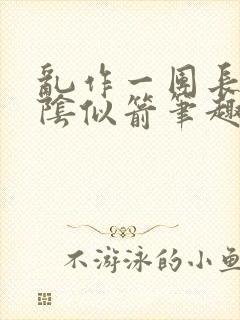 乱作一团長
陰似箭筆趣
不游泳的小魚